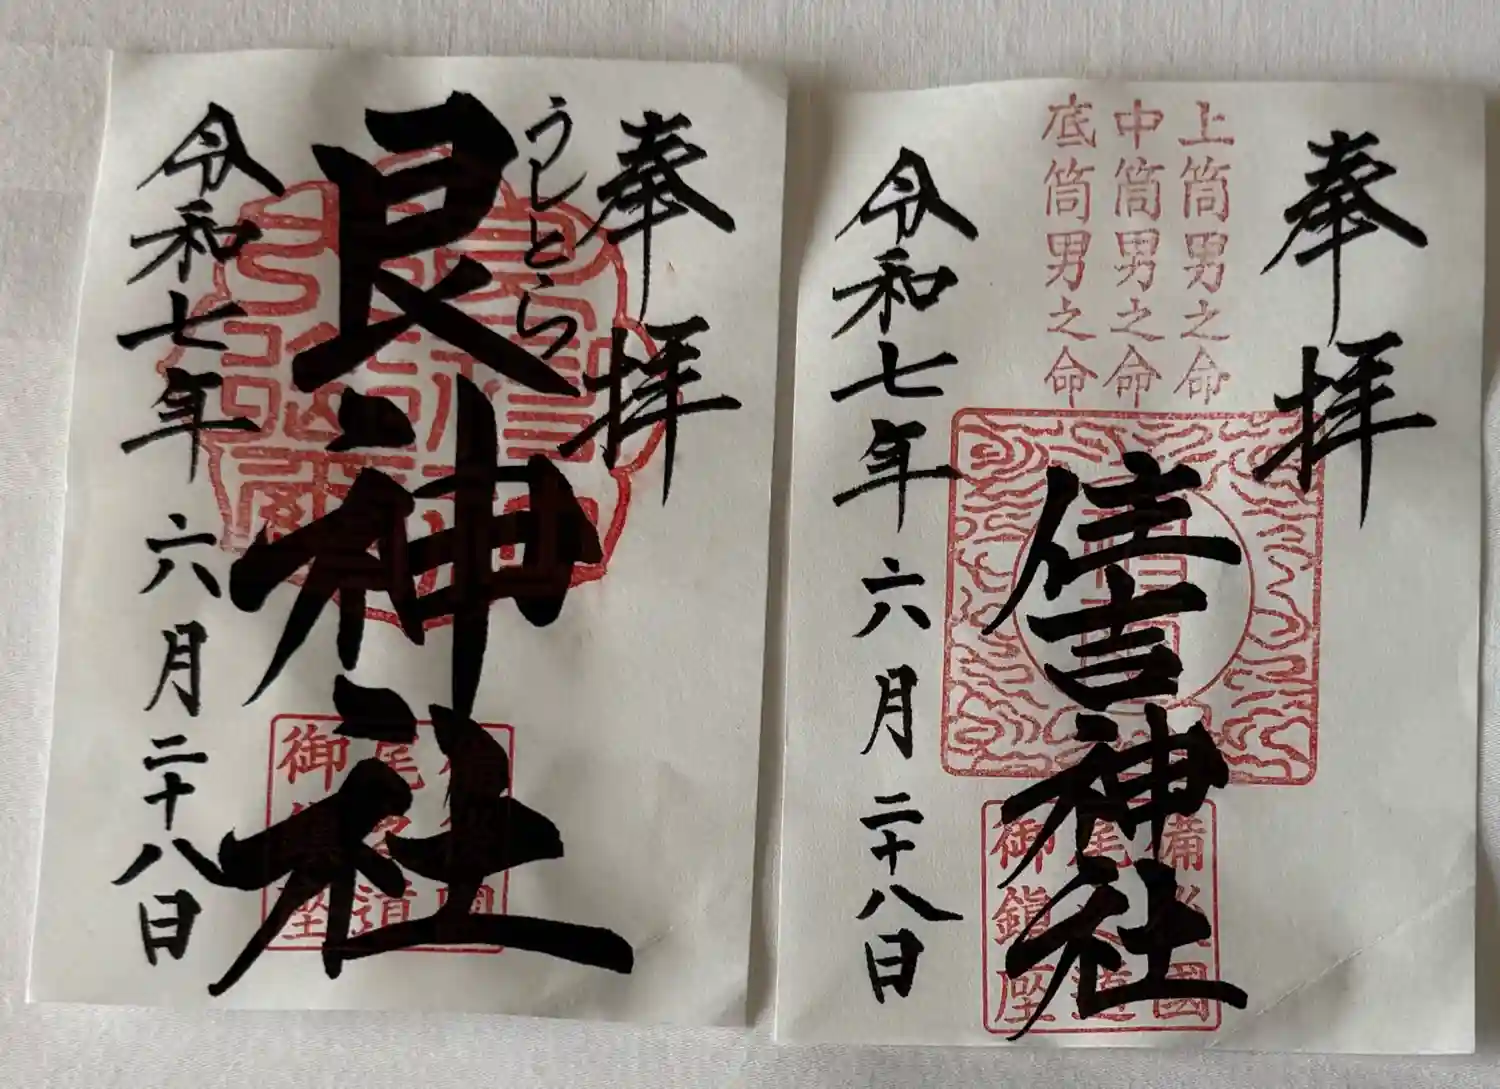 奉拝
うしとら
艮神社
令和七年六月二十八日
御
座
奉拝
上筒男之命
中筒男之命
底筒男之命
住吉神社
令和七年六月二十八日
御鎮座